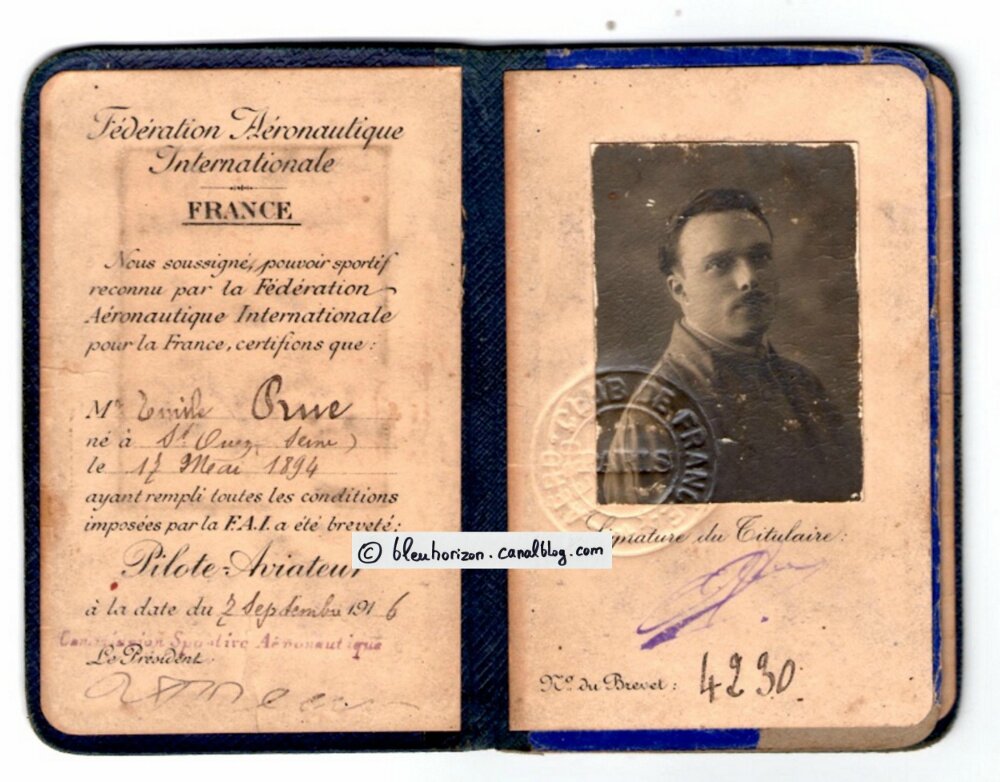 Fédération Aéronautique
Internationale
FRANCE
Nous soussigné, pouvoir sportif
reconnu par la Fédération
Aéronautique Internationale
pour la France, certifions que :
Mr Emile Prue
né à St Ouen, Seine
le 17 Mai 1894
ayant rempli toutes les conditions
imposées par la F.A.I. a été breveté :
Pilote-Aviateur
à la date du 7 Septembre 1916
Commission Sportive Aéronautique
Le Président
© bleuhorizon.canalblog.com
AERO-CLUB DE FRANCE
PARIS
Signature du Titulaire :
No. du Brevet : 4230